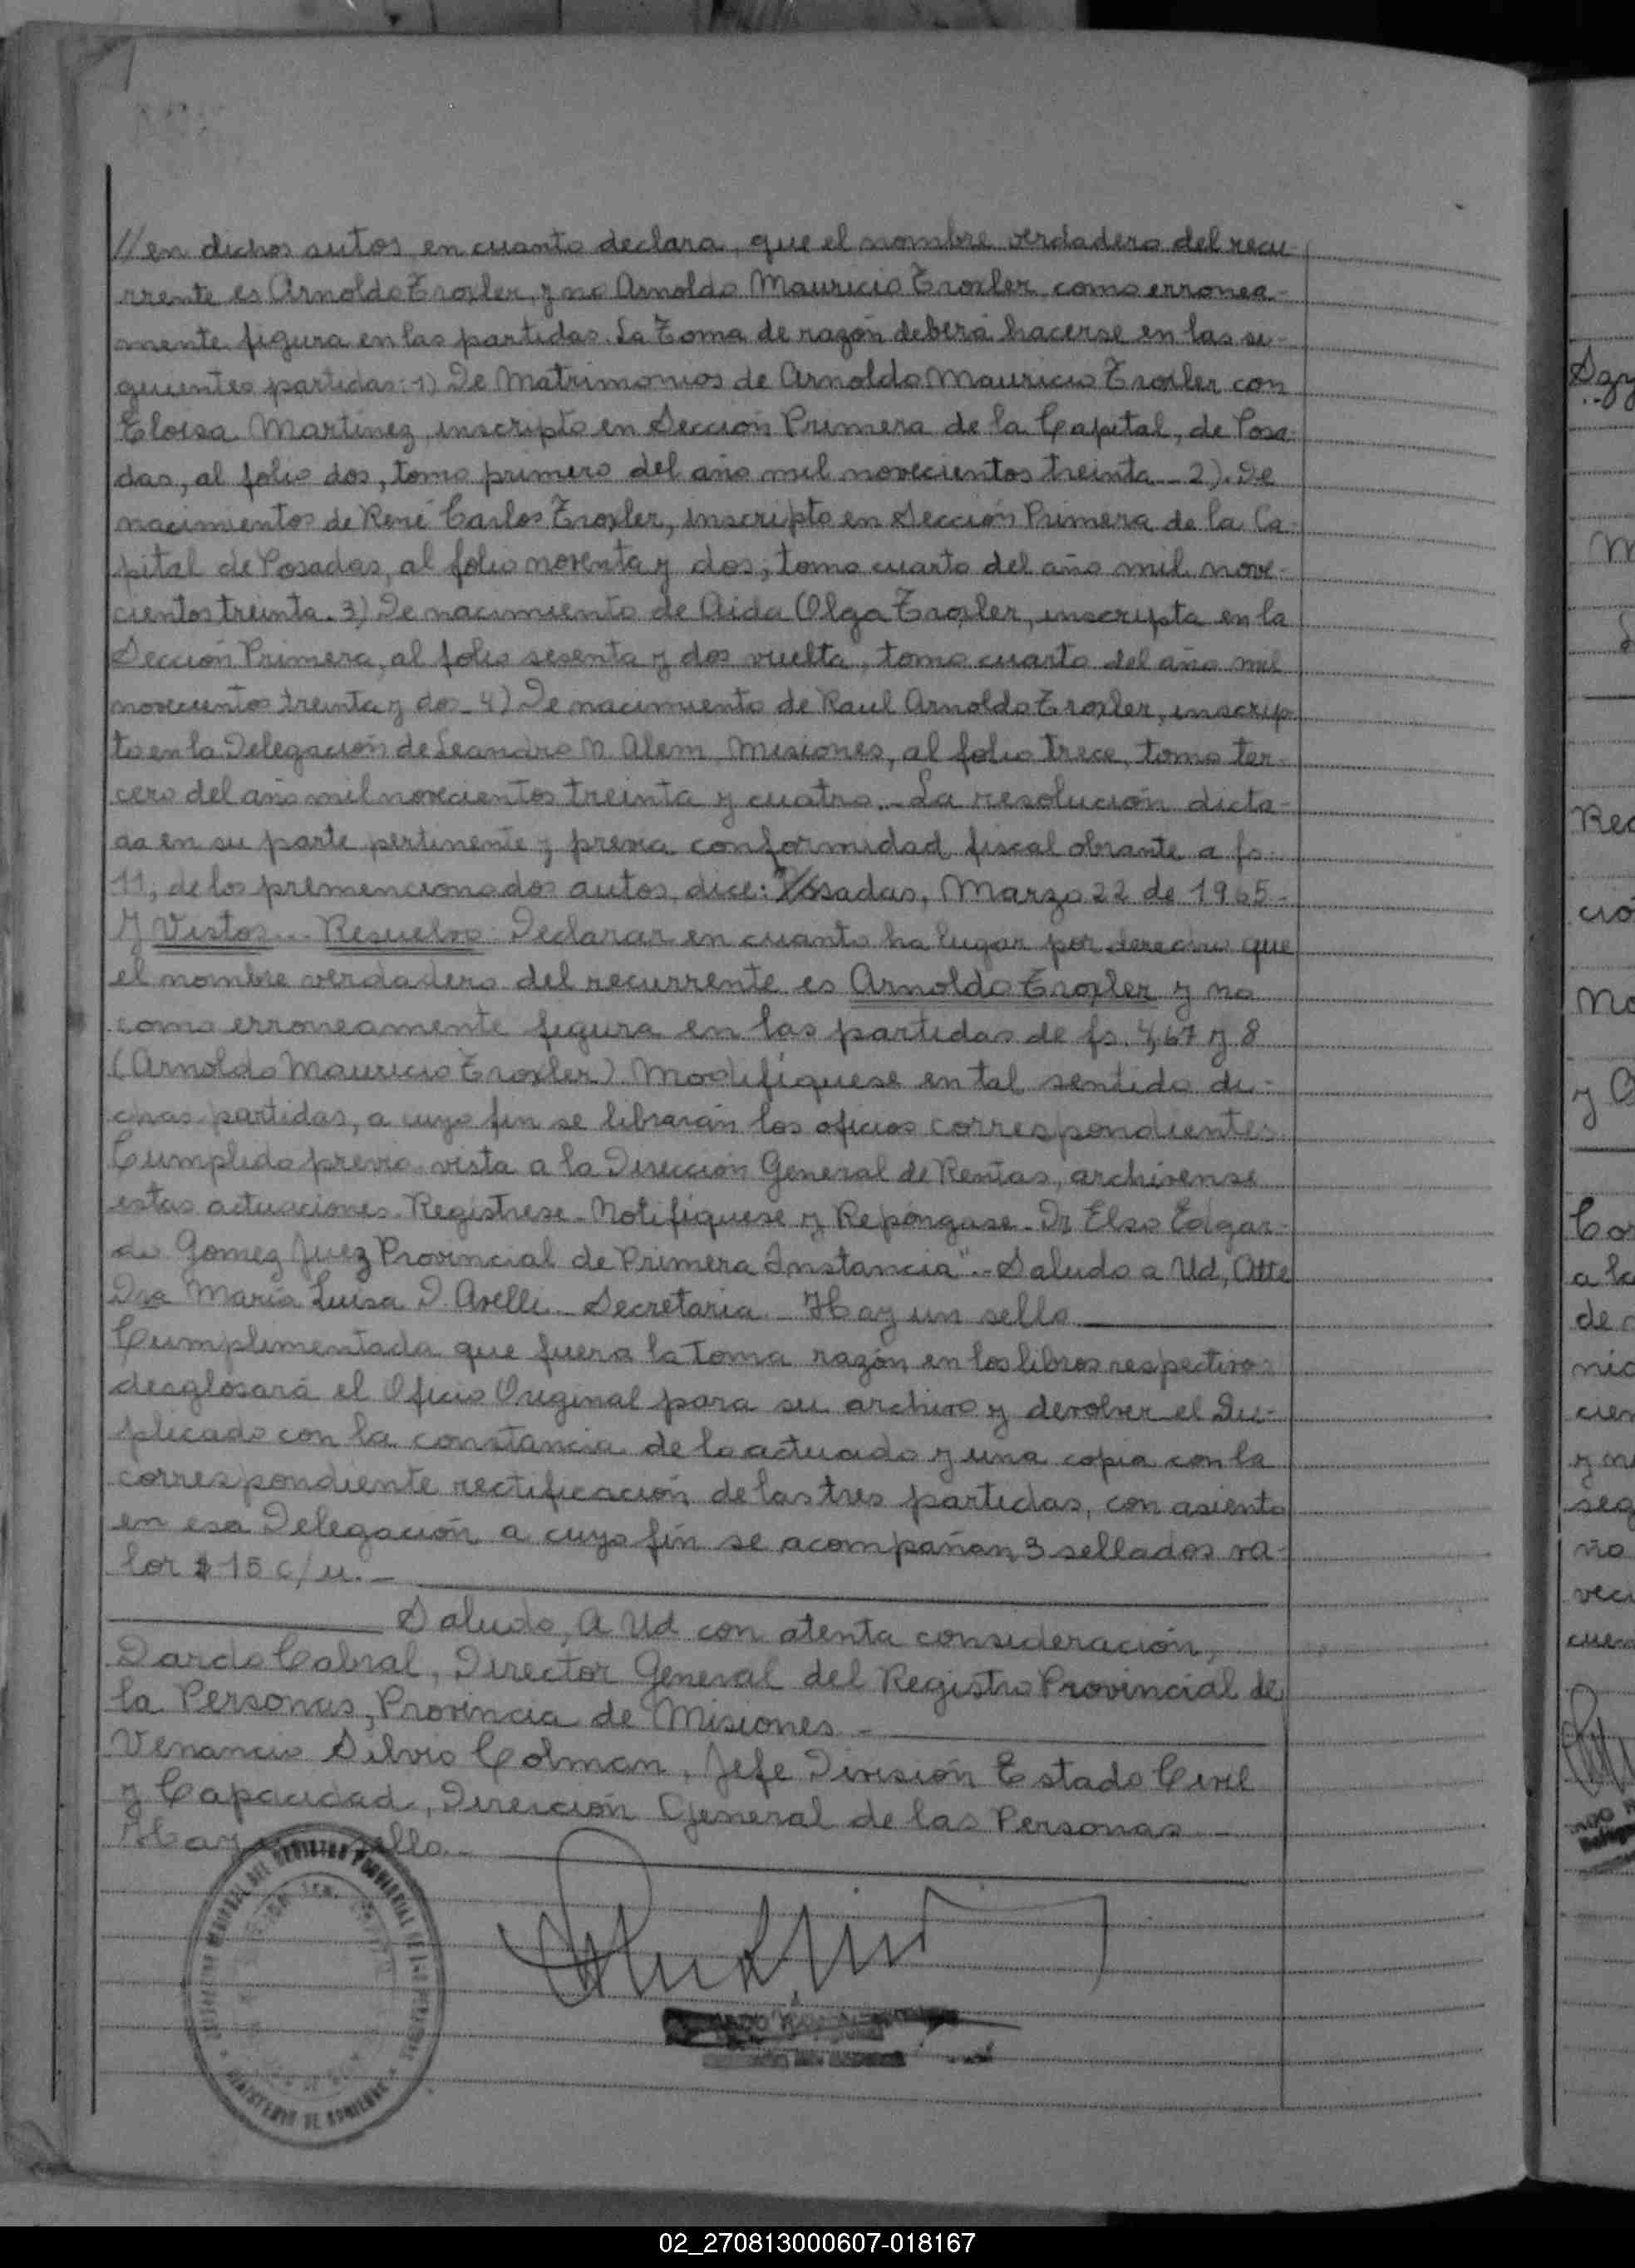 // en dichos autos, en cuanto declara, que el nombre verdadero del recu-
rrente es Arnoldo Troxler, y no Arnoldo Mauricio Troxler, como erronea-
mente figura en las partidas. La Toma de razón deberá hacerse en las si-
guientes partidas: 1) De Matrimonios de Arnoldo Mauricio Troxler con
Eloisa Martinez, inscripto en Sección Primera de la Capital, de Posa-
das, al folio dos, tomo primero del año mil novecientos treinta.- 2). De
nacimientos de René Carlos Troxler, inscripto en Sección Primera de la Ca-
pital de Posadas, al folio noventa y dos, tomo cuarto del año mil nove-
cientos treinta. 3) De nacimiento de Aida Olga Troxler, inscripta en la
Sección Primera, al folio sesenta y dos vuelta, tomo cuarto del año mil
novecientos treinta y dos_ 4) De nacimiento de Raul Arnoldo Troxler, inscrip-
to en la Delegación de Leandro N. Alem, Misiones, al folio trece, tomo ter-
cero del año mil novecientos treinta y cuatro.- La resolución dicta-
da en su parte pertinente y previa conformidad fiscal obrante a fs.
11, de los premencionados autos, dice: "Posadas, Marzo 22 de 1965.-
Y Vistos... Resuelvo: Declarar en cuanto ha lugar por derecho que
el nombre verdadero del recurrente es Arnoldo Troxler y no
como erroneamente figura en las partidas de fs. 4,67 y 8
(Arnoldo Mauricio Troxler). Modifiquese en tal sentido di-
chas partidas, a cuyo fin se librarán los oficios correspondientes.
Cumplido previo vista a la Dirección General de Rentas, archivense
estas actuaciones. Registrese. Notifiquese y Repóngase. Dr Elso Edgar-
do Gomez Juez Provincial de Primera Instancia".- Saludo a Ud, Atte
Dra Maria Luisa D. Avelli. Secretaria.- Hay un sello
Cumplimentada que fuera la Toma razón en los libros respectivos
desglosará el Oficio Original para su archivo y devolver el Du-
plicado con la constancia de lo actuado y una copia con la
correspondiente rectificación de las tres partidas, con asiento
en esa Delegación, a cuyo fin se acompañan 3 sellados va-
lor $ 15 c/u.-
Saludo, A Ud con atenta consideración,
Dardo Cabral, Director General del Registro Provincial de
la Personas, Provincia de Misiones.-
Venancio Silvio Colman, Jefe División Estado Civil
y Capacidad, Dirección General de las Personas
Hay sello.-
DEL REGISTRO PROVINCIAL DE LAS PERSONAS
MINISTERIO DE GOBIERNO
02_270813000607-018167